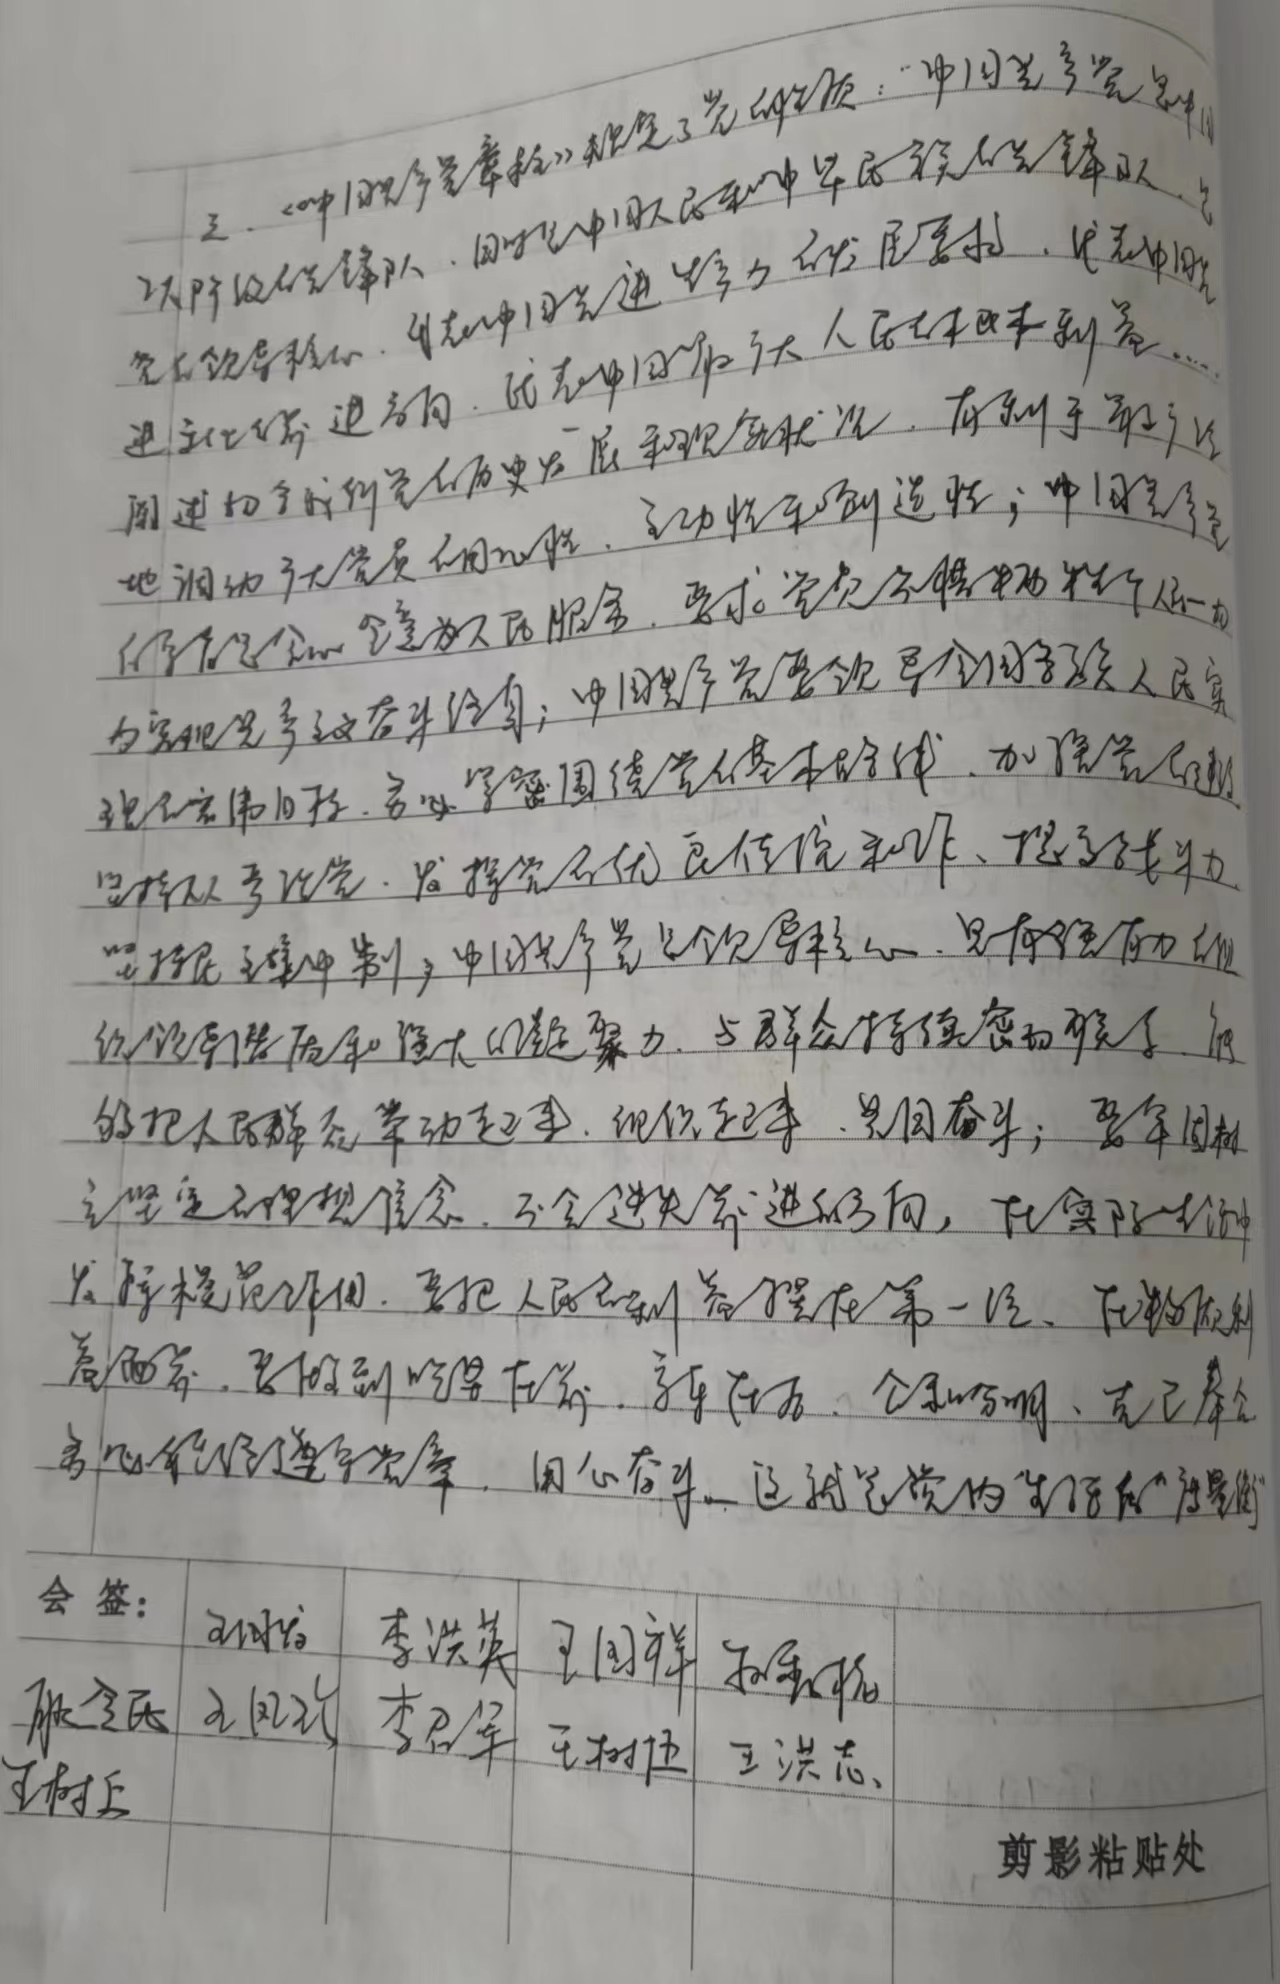 三、《中国共产党章程》规定了党的性质：“中国共产党是中国
工人阶级的先锋队、同时是中国人民和中华民族的先锋队、是
领导核心、代表中国先进生产力的发展要求、代表中国先
进文化的前进方向、代表中国最广大人民的根本利益……
阐述切合我们党的历史发展和现实状况、有利于
地调动广大党员的积极性、主动性和创造性；中国共产党
的宗旨是全心全意为人民服务、要求党员不惜牺牲个人的一切
为实现共产主义奋斗终身；中国共产党要领导全国各族人民实
现的宏伟目标、必须紧密围绕党的基本路线、加强党的建设
坚持从严治党、发扬党的优良传统和作、提高战斗力
坚持民主集中制；中国共产党是领导核心、只有强有力的组
织领导和强大的凝聚力、与群众持续密切联系、能
够把人民群众带动起来、组织起来、共同奋斗；要牢固树
立坚定的理想信念、不会迷失前进的方向，在实际生活中
发挥模范作用、要把人民的利益摆在第一位、在物质利
益面前、要做到吃苦在前、享乐在后、公私分明、克己奉公
遵守党章、用心奋斗、这就是党内生活的“
会签： 李洪英 王国祥
李召军 王树伍 王洪志
王树
剪影粘贴处